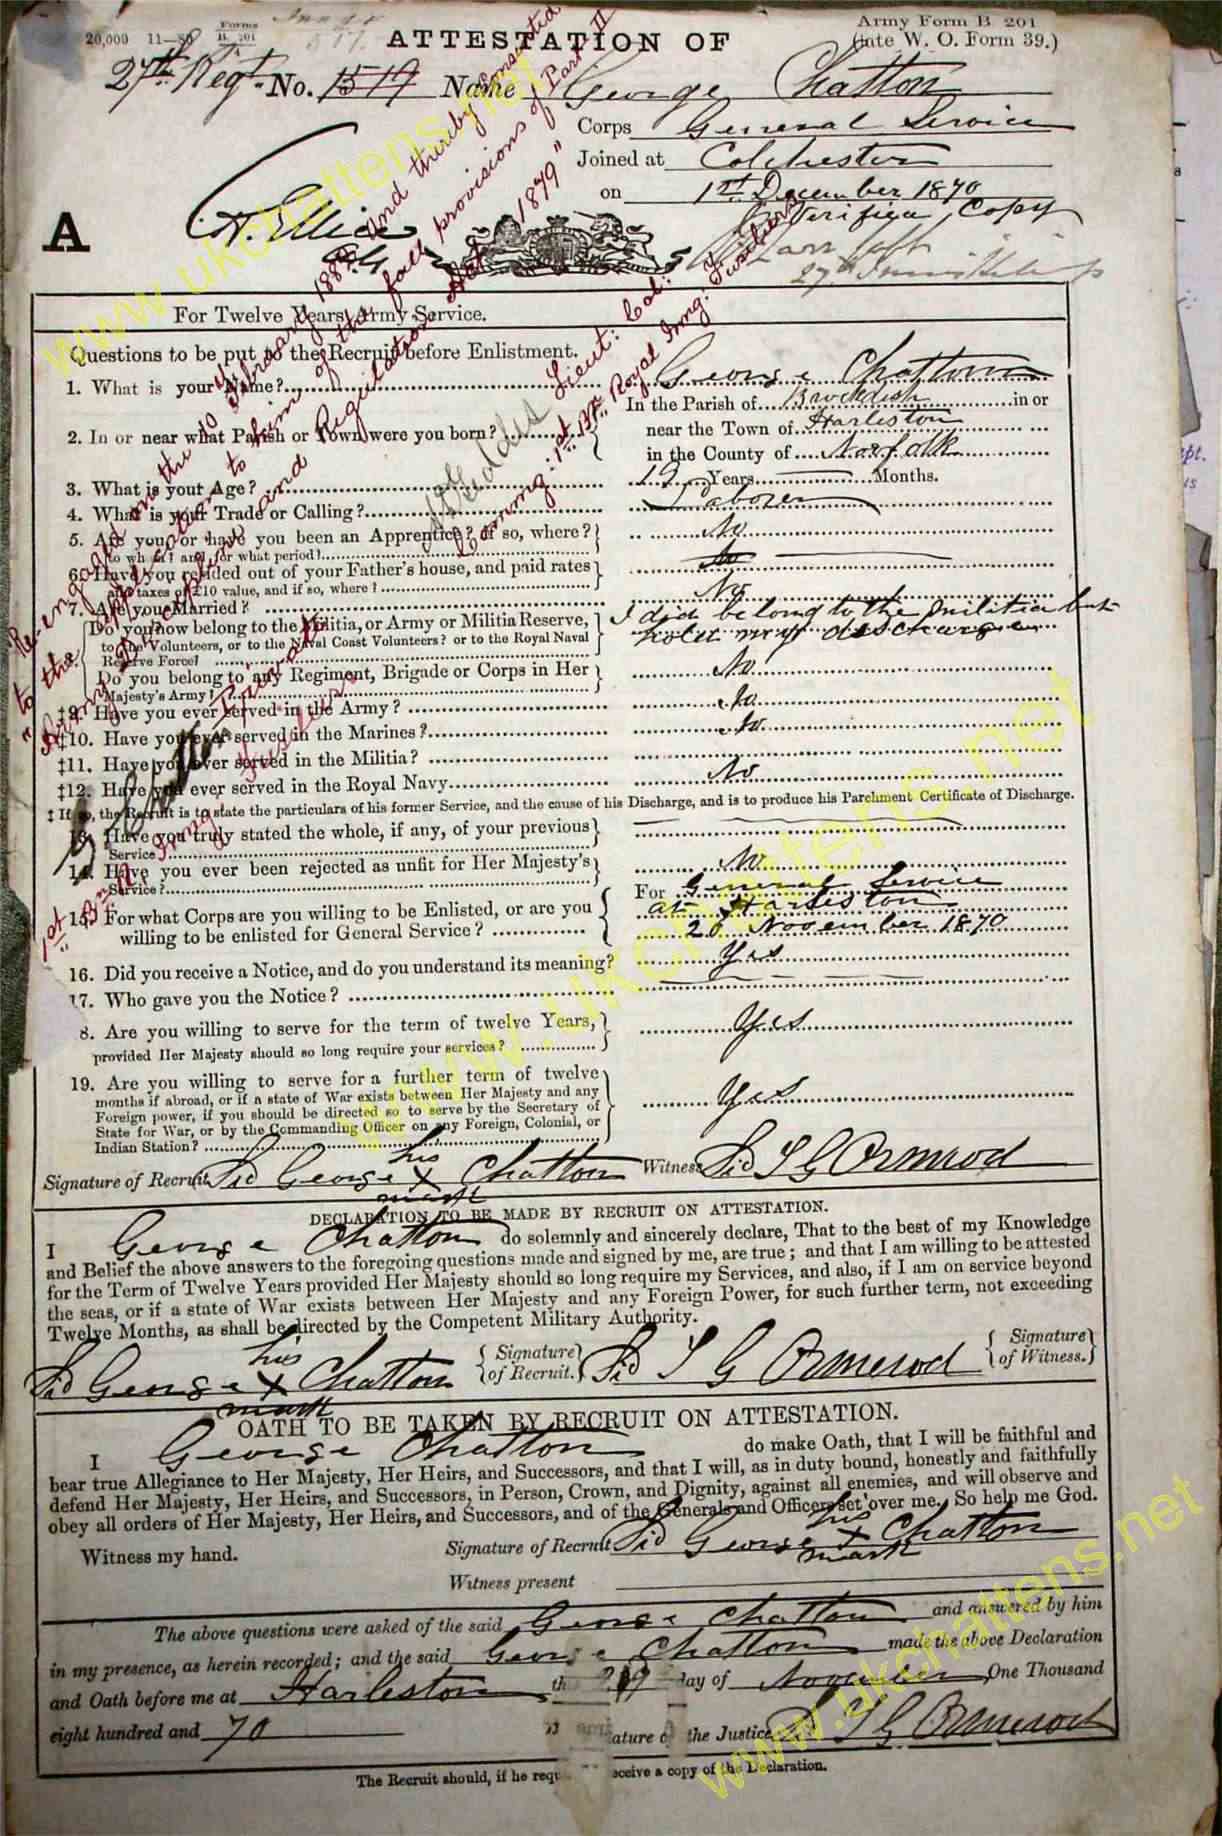 20,000 11—80 Forms B. 201
ATTESTATION OF
Army Form B 201
(late W. O. Form 39.)
27th Regt. No. 1517 Name George Chatton
Corps General Service
Joined at Colchester
on 1st December 1870
Copy
27th
A
For Twelve Years Army Service.
Questions to be put to the Recruit before Enlistment.
1. What is your Name? George Chatton
2. In or near what Parish or Town were you born? In the Parish of Brockdish in or
near the Town of Harleston
in the County of Norfolk
3. What is your Age? 19 Years Months.
4. What is your Trade or Calling? Laborer
5. Are you, or have you been an Apprentice? if so, where? No
to whom? and, for what period?
6. Have you resided out of your Father's house, and paid rates No
and taxes of £10 value, and if so, where?
7. Are you Married? No
8. Do you now belong to the Militia, or Army or Militia Reserve, I did belong to the Militia but
to the Volunteers, or to the Naval Coast Volunteers? or to the Royal Naval my discharge
Reserve Force?
Do you belong to any Regiment, Brigade or Corps in Her No
Majesty's Army?
‡9. Have you ever served in the Army? No
‡10. Have you ever served in the Marines? No
‡11. Have you ever served in the Militia?
‡12. Have you ever served in the Royal Navy No
‡ If so, the Recruit is to state the particulars of his former Service, and the cause of his Discharge, and is to produce his Parchment Certificate of Discharge.
13. Have you truly stated the whole, if any, of your previous
Service
14. Have you ever been rejected as unfit for Her Majesty's No
Service?
15. For what Corps are you willing to be Enlisted, or are you For General Service
willing to be enlisted for General Service? at Harleston
20 November 1870
16. Did you receive a Notice, and do you understand its meaning? Yes
17. Who gave you the Notice?
8. Are you willing to serve for the term of twelve Years, Yes
provided Her Majesty should so long require your services?
19. Are you willing to serve for a further term of twelve
months if abroad, or if a state of War exists between Her Majesty and any Yes
Foreign power, if you should be directed so to serve by the Secretary of
State for War, or by the Commanding Officer on any Foreign, Colonial, or
Indian Station?
Signature of Recruit Sid George his X mark Chatton Witness Sid T G Ormerod
DECLARATION TO BE MADE BY RECRUIT ON ATTESTATION.
I George Chatton do solemnly and sincerely declare, That to the best of my Knowledge
and Belief the above answers to the foregoing questions made and signed by me, are true; and that I am willing to be attested
for the Term of Twelve Years provided Her Majesty should so long require my Services, and also, if I am on service beyond
the seas, or if a state of War exists between Her Majesty and any Foreign Power, for such further term, not exceeding
Twelve Months, as shall be directed by the Competent Military Authority.
Sid George his X mark Chatton {Signature of Recruit.} Sid T G Ormerod {Signature of Witness.}
OATH TO BE TAKEN BY RECRUIT ON ATTESTATION.
I George Chatton do make Oath, that I will be faithful and
bear true Allegiance to Her Majesty, Her Heirs, and Successors, and that I will, as in duty bound, honestly and faithfully
defend Her Majesty, Her Heirs, and Successors, in Person, Crown, and Dignity, against all enemies, and will observe and
obey all orders of Her Majesty, Her Heirs, and Successors, and of the Generals and Officers set over me. So help me God.
Witness my hand. Signature of Recruit Sid George his X mark Chatton
Witness present
The above questions were asked of the said George Chatton and answered by him
in my presence, as herein recorded; and the said George Chatton made the above Declaration
and Oath before me at Harleston day of November One Thousand
eight hundred and 70 ature the Justice T G Ormerod
The Recruit should, if he requ eceive a copy of the Declaration.
Re-engaged on the 10 February 1882 and thereby consented
to the application to him of the foll. provisions of Part II
"Army Discipline and Regulation Act 1879"
Private
1st Bn. Fusiliers
Geddes Lieut: Col:
Commg: 1st Bn. Royal Inng: Fusiliers
www.ukchattens.net
www.ukchattens.net
www.ukchattens.net